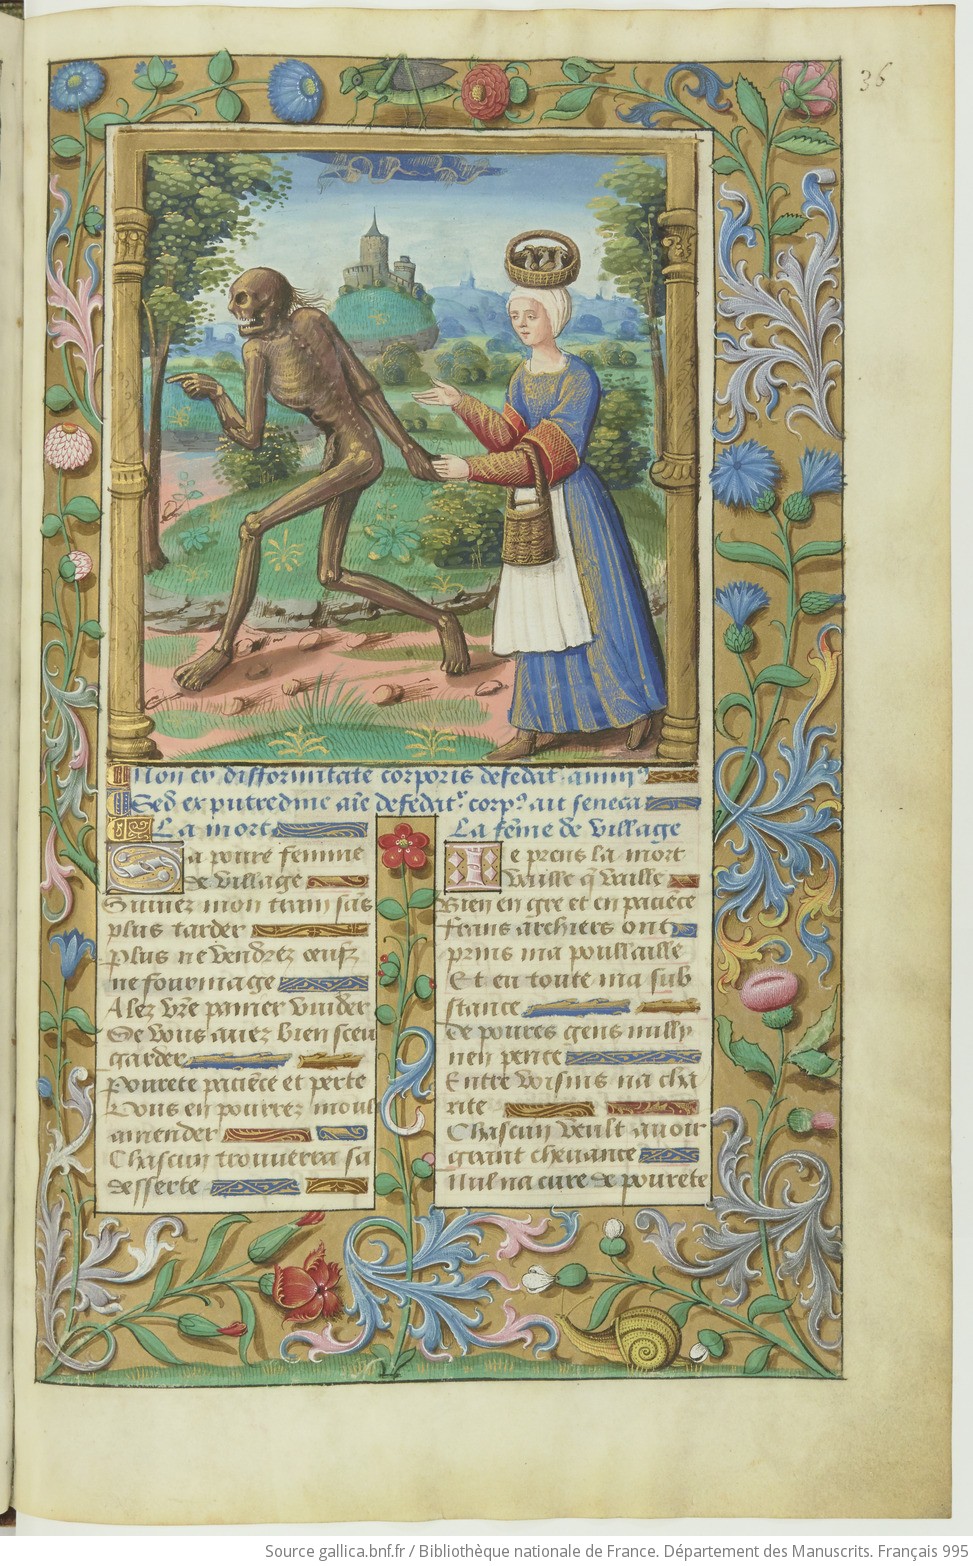 36
Non ex difformitate corporis fedat᷑ animꝰ
Sed ex putredine aīe defedat᷑ corpꝰ ait seneca
La mort
Sa poure femme
de village
Suiuez mon train sās
plus tarder
plus ne vendrez œufz
ne fourmage
Alez vr̄e panier vuider
Se vous auez bien sceu
garder
Pourete paciēce et perte
Vous en pourrez moul
amender
Chascun trouuerra sa
desserte
La fēme de village
Je prens la mort
vaille q̄ vaille
Bien en gre et en paciēce
frans archiers ont
prins ma poullaille
Et en toute ma sub
stance
de poures gens nulluy
nen pence
Entre voisins na cha
rite
Chascun veult auoir
grant cheuance
Nul na cure de pourete
Source gallica.bnf.fr / Bibliothèque nationale de France. Département des Manuscrits. Français 995